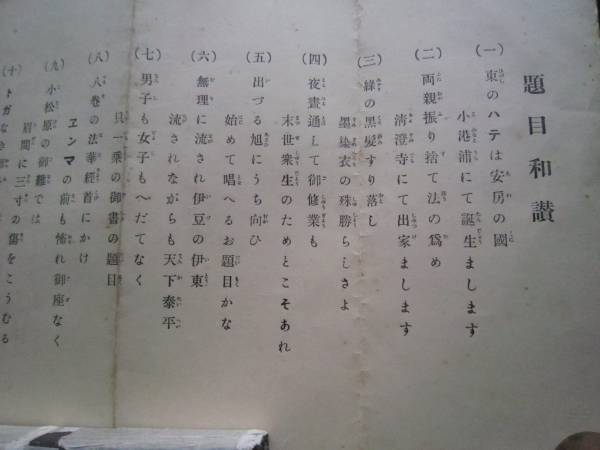 題目和讃
(一)東のハテは安房の國
小港浦にて誕生まします
(二)両親振り捨て法の爲め
淸澄寺にて出家まします
(三)綠の黒髪すり落し
墨染衣の殊勝らしさよ
(四)夜晝通して御修業も
末世衆生のためとこそあれ
(五)出づる旭にうち向ひ
始めて唱へるお題目かな
(六)無理に流され伊豆の伊東
流されながらも天下泰平
(七)男子も女子もへだてなく
只一乗の御書の題目
(八)八巻の法華經首にかけ
ヱンマの前も怖れ御座なく
(九)小松原の御難では
眉間に三寸の傷をこうむる
(十)トガなき